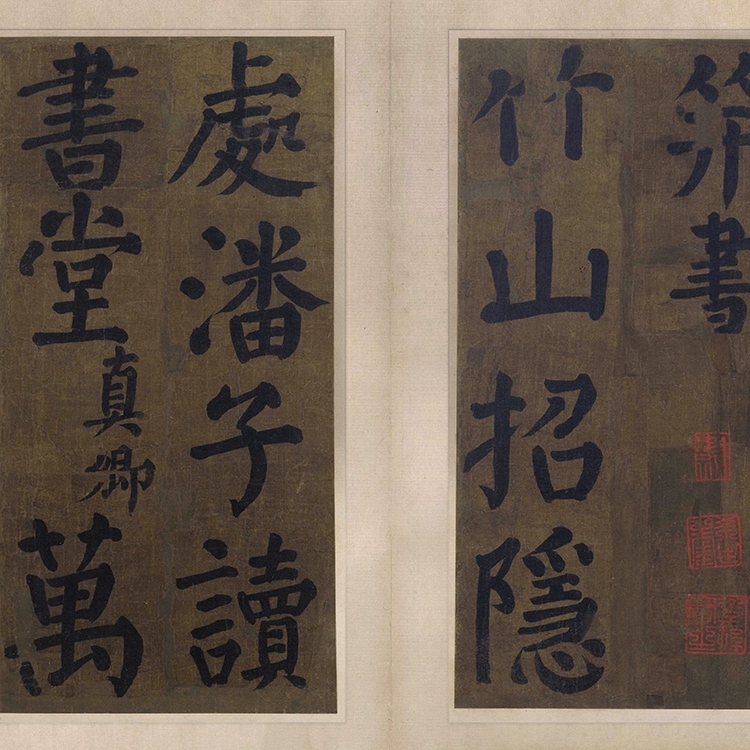 書
竹山招隱
處潘子讀
書堂真卿萬